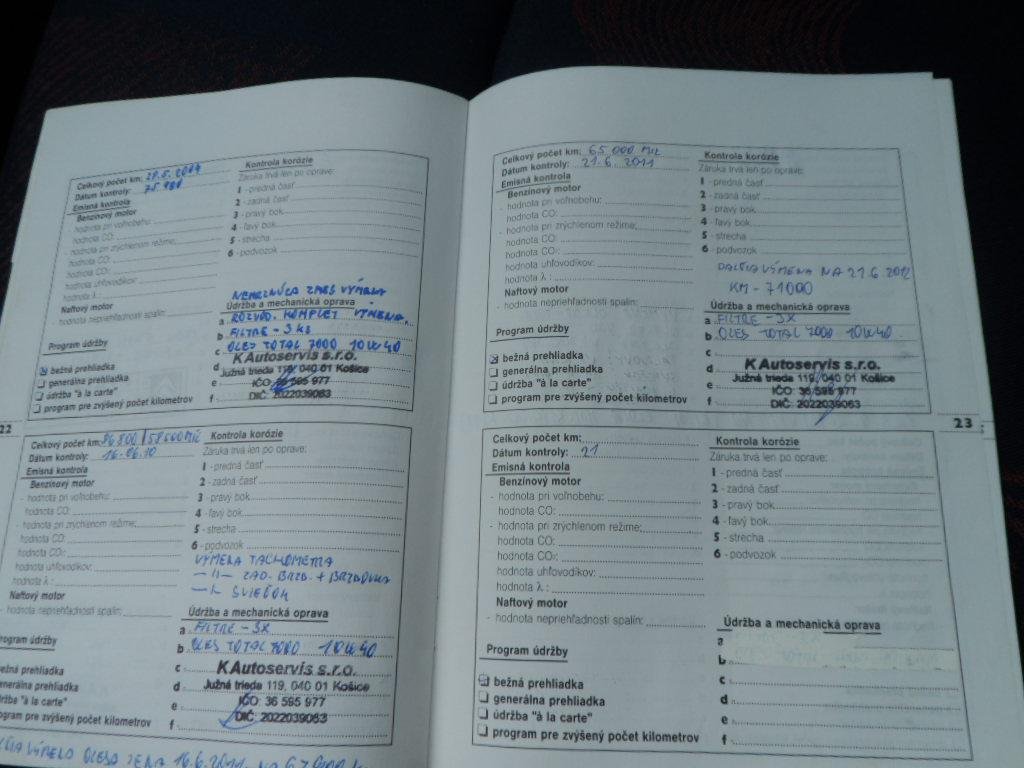 Celkový počet km: 28.5.2009
Dátum kontroly: 75 980
Emisná kontrola
Benzínový motor
- hodnota pri voľnobehu:
hodnota CO:
- hodnota pri zrýchlenom režime:
hodnota CO:
hodnota CO₂:
hodnota uhľovodíkov:
hodnota λ :
Naftový motor
- hodnota nepriehľadnosti spalín:
Program údržby
bežná prehliadka
generálna prehliadka
údržba "à la carte"
program pre zvýšený počet kilometrov
Kontrola korózie
Záruka trvá len po oprave:
1 - predná časť
2 - zadná časť
3 - pravý bok
4 - ľavý bok
5 - strecha
6 - podvozok
NEMRZNÚCA ZMES VÝMENA
Údržba a mechanická oprava
a ROZVOD. KOMPLET VÝMENA.
b FILTRE - 3 ks
c OLEJ TOTAL 7000 10W40
d
e
f
K Autoservis s.r.o.
Južná trieda 119, 040 01 Košice
IČO: 36 595 977
DIČ: 2022039063
22
Celkový počet km: 96 800 / 58 600 MIL
Dátum kontroly: 16.06.10
Emisná kontrola
Benzínový motor
- hodnota pri voľnobehu:
hodnota CO:
- hodnota pri zrýchlenom režime:
hodnota CO:
hodnota CO₂:
hodnota uhľovodíkov:
hodnota λ :
Naftový motor
- hodnota nepriehľadnosti spalín:
rogram údržby
bežná prehliadka
enerálna prehliadka
držba "à la carte"
ogram pre zvýšený počet kilometrov
Kontrola korózie
Záruka trvá len po oprave:
1 - predná časť
2 - zadná časť
3 - pravý bok
4 - ľavý bok
5 - strecha
6 - podvozok
VÝMENA TACHOMETRA
- 11 - ZAD. BRZD. + BRZDOVKA
SVIEČOK
Údržba a mechanická oprava
a FILTRE - 3X
b OLEJ TOTAL 7000 10W40
c
d
e
f
K Autoservis s.r.o.
Južná trieda 119, 040 01 Košice
IČO: 36 595 977
DIČ: 2022039063
VÝMENA OLEJA 16.6.2011
Celkový počet km: 65 000 MIL
Dátum kontroly: 21.6.2011
Emisná kontrola
Benzínový motor
- hodnota pri voľnobehu:
hodnota CO:
- hodnota pri zrýchlenom režime:
hodnota CO:
hodnota CO₂:
hodnota uhľovodíkov:
hodnota λ :
Naftový motor
- hodnota nepriehľadnosti spalín:
Program údržby
bežná prehliadka
generálna prehliadka
údržba "à la carte"
program pre zvýšený počet kilometrov
Kontrola korózie
Záruka trvá len po oprave:
1 - predná časť
2 - zadná časť
3 - pravý bok
4 - ľavý bok
5 - strecha
6 - podvozok
ĎALŠIA VÝMENA NA 21.6.2012
KM - 71000
Údržba a mechanická oprava
a FILTRE - 3X
b OLEJ TOTAL 7000 10W40
c
d
e
f
K Autoservis s.r.o.
Južná trieda 119, 040 01 Košice
IČO: 36 595 977
DIČ: 2022039063
23
Celkový počet km:
Dátum kontroly: 21
Emisná kontrola
Benzínový motor
- hodnota pri voľnobehu:
hodnota CO:
- hodnota pri zrýchlenom režime:
hodnota CO:
hodnota CO₂:
hodnota uhľovodíkov:
hodnota λ :
Naftový motor
- hodnota nepriehľadnosti spalín:
Program údržby
bežná prehliadka
generálna prehliadka
údržba "à la carte"
program pre zvýšený počet kilometrov
Kontrola korózie
Záruka trvá len po oprave:
1 - predná časť
2 - zadná časť
3 - pravý bok
4 - ľavý bok
5 - strecha
6 - podvozok
Údržba a mechanická oprava
a
b
c
d
e
f